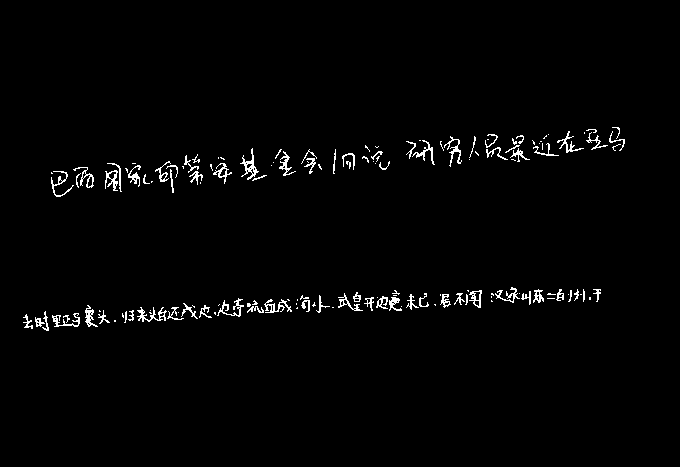 巴西国家印第安基金会1日说 研究人员最近在亚马
去时里正与裹头，归来头白还戍边，边亭流血成海水，武皇开边意未已，君不闻 汉家山东二百州，千